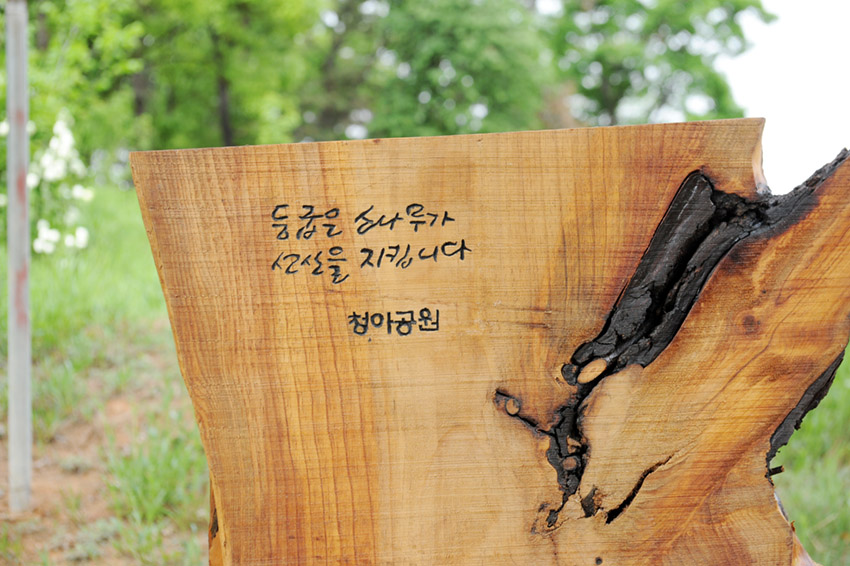 등굽은 소나무가
선산을 지킵니다
청아공원